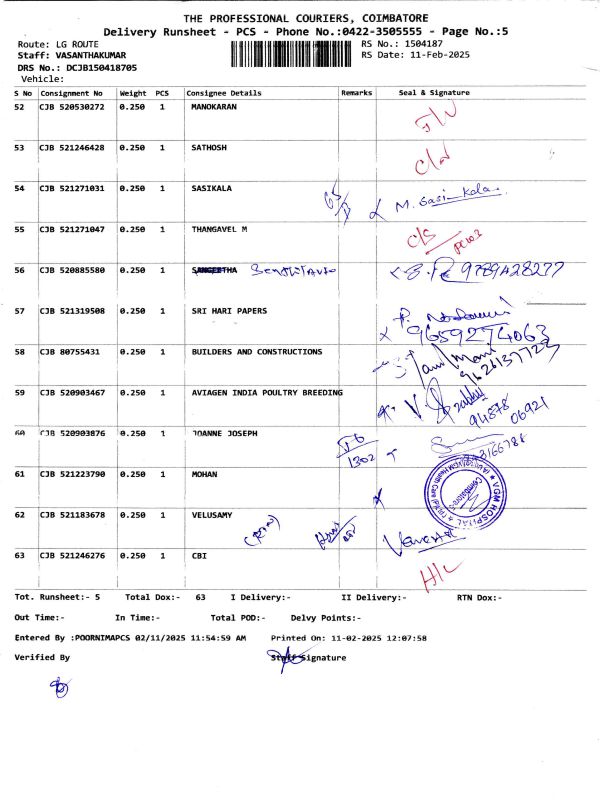 THE PROFESSIONAL COURIERS, COIMBATORE
Delivery Runsheet - PCS - Phone No.:0422-3505555 - Page No.:5
Route: LG ROUTE
RS No.: 1504187
Staff: VASANTHAKUMAR
RS Date: 11-Feb-2025
DRS No.: DCJB150418705
Vehicle:
S No Consignment No Weight PCS Consignee Details Remarks Seal & Signature
52 CJB 520530272 0.250 1 MANOKARAN
53 CJB 521246428 0.250 1 SATHOSH
54 CJB 521271031 0.250 1 SASIKALA M. Sasi-kala.
55 CJB 521271047 0.250 1 THANGAVEL M C/S
56 CJB 520885580 0.250 1 SANGEETHA
57 CJB 521319508 0.250 1 SRI HARI PAPERS
9659274063
58 CJB 80755431 0.250 1 BUILDERS AND CONSTRUCTIONS
9626137723
59 CJB 520903467 0.250 1 AVIAGEN INDIA POULTRY BREEDING
94878 06921
60 CJB 520903876 0.250 1 JOANNE JOSEPH
1302
61 CJB 521223790 0.250 1 MOHAN
VGM HOSPITAL
62 CJB 521183678 0.250 1 VELUSAMY
63 CJB 521246276 0.250 1 CBI
Tot. Runsheet:- 5 Total Dox:- 63 I Delivery:- II Delivery:- RTN Dox:-
Out Time:- In Time:- Total POD:- Delvy Points:-
Entered By :POORNIMAPCS 02/11/2025 11:54:59 AM Printed On: 11-02-2025 12:07:58
Verified By Staff Signature